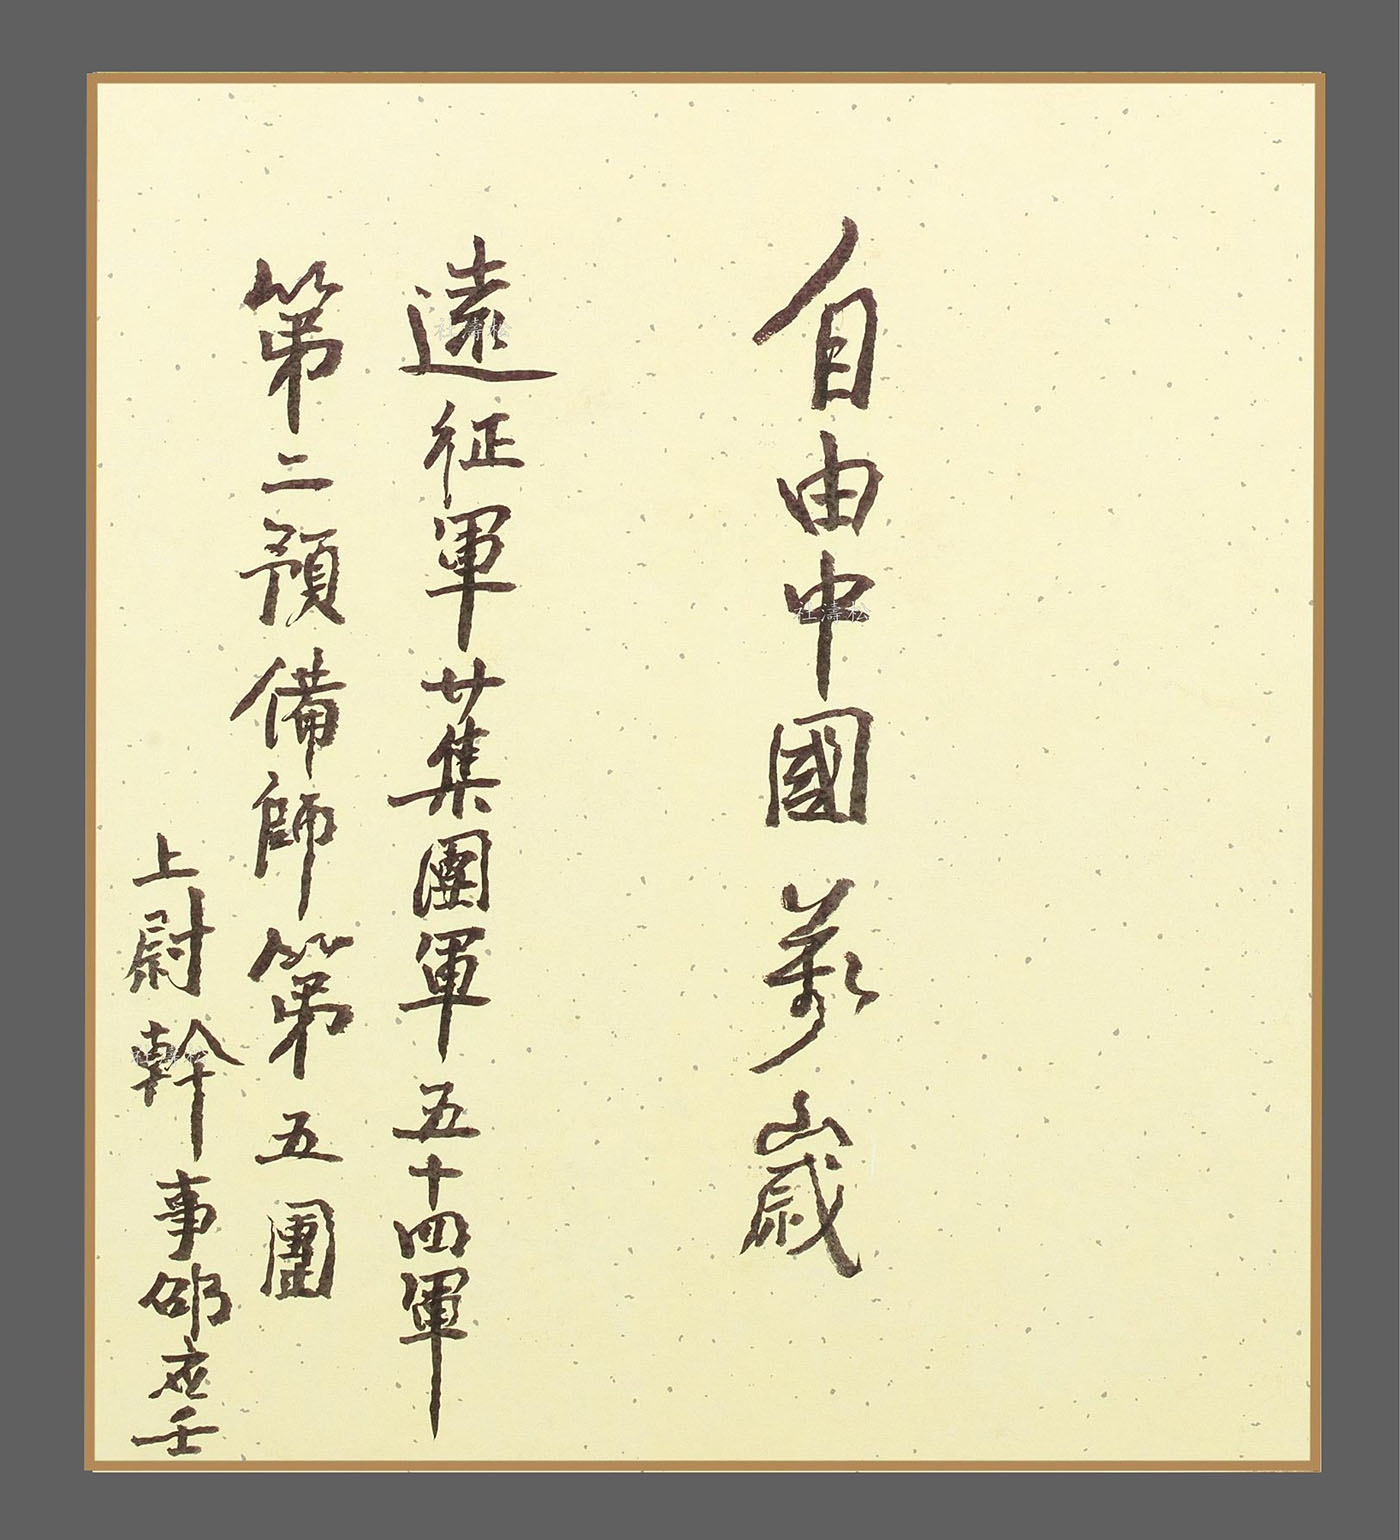 自由中國萬歲
遠征軍廿集團軍五十四軍
第二預備師第五團
上尉幹事邵应壬
杜濤松
杜濤松